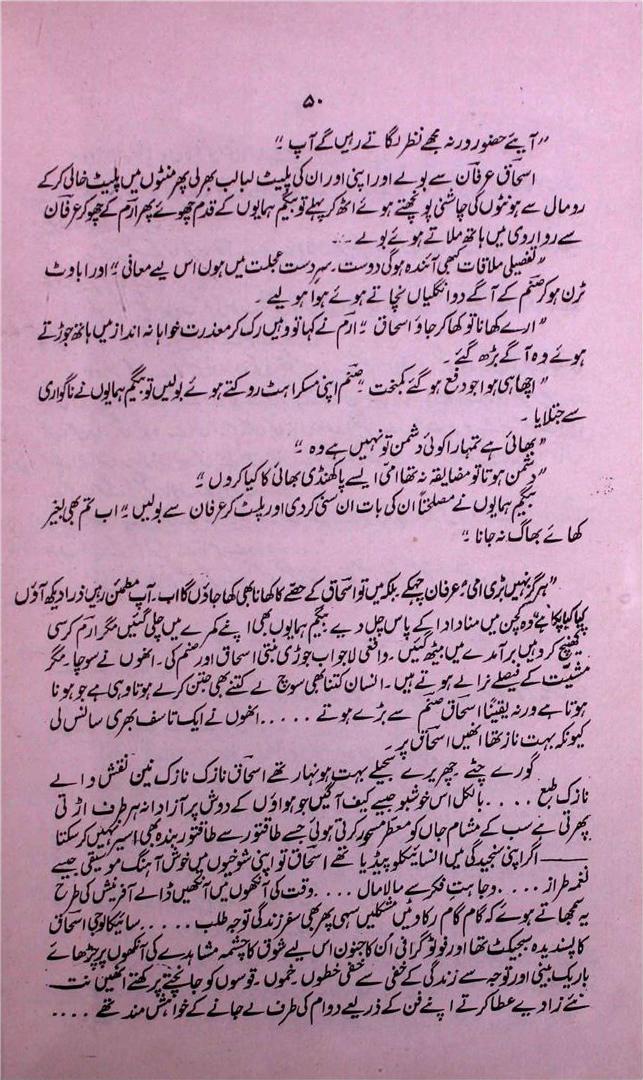 ۵۰
"آیئے حضور ورنہ مجھے نظر لگاتے رہیں گے آپ ۔"
اسحاق عرفان سے بولے اور اپنی اور ان کی پلیٹ لبالب بھر لی پھر منٹوں میں پلیٹ خالی کر کے
رومال سے ہونٹوں کی چاشنی پونچھتے ہوئے اٹھ کر پہلے تو بیگم ہمایوں کے قدم چھوئے پھر ارم کے چھو کر عرفان
سے رواروی میں ہاتھ ملاتے ہوئے بولے ۔۔۔
"تفصیلی ملاقات کبھی آئندہ ہو گی دوست ۔ سرِ دست عجلت میں ہوں اس لیے معافی" اور اباوٹ
ٹرن ہو کر صنم کے آگے دو انگلیاں نچاتے ہوئے ہوا ہو لیے ۔
"ارے کھانا تو کھا کر جاؤ اسحاق" ارم نے کہا تو وہیں رک کر معذرت خواہانہ انداز میں ہاتھ جوڑتے
ہوئے وہ آگے بڑھ گئے ۔
"اچھا ہی ہوا جو دفع ہو گئے کمبخت" صنم اپنی مسکراہٹ روکتے ہوئے بولیں تو بیگم ہمایوں نے ناگواری
سے جتلایا ۔
"بھائی ہے تمہارا کوئی دشمن تو نہیں ہے وہ ۔"
"دشمن ہوتا تو مضایقہ نہ تھا امی ایسے پاکھنڈی بھائی کا کیا کروں ۔"
بیگم ہمایوں نے مصلحتاً ان کی بات ان سنی کر دی اور پلیٹ کر عرفان سے بولیں "اب تم بھی بغیر
کھائے بھاگ نہ جانا ۔"
"ہرگز نہیں بڑی امی" عرفان چہکے بلکہ میں تو اسحاق کے حصے کا کھانا بھی کھا جاؤں گا اب ۔ آپ مطمئن رہیں ذرا دیکھ آؤں
کیا کیا پکا ہے" وہ کچن میں منا دادا کے پاس چل دیے بیگم ہمایوں بھی اپنے کمرے میں چلی گئیں مگر ارم کرسی
کھینچ کر وہیں برآمدے میں بیٹھ گئیں ۔ واقعی لاجواب جوڑی بنتی اسحاق اور صنم کی ۔ انھوں نے سوچا ۔ مگر
مشیت کے فیصلے نرالے ہوتے ہیں ۔ انسان کتنا بھی سوچ لے کتنے بھی جتن کر لے ہوتا وہی ہے جو ہونا
ہوتا ہے ورنہ یقیناً اسحاق صنم سے بڑے ہوتے ..... انھوں نے ایک تاسف بھری سانس لی
کیونکہ بہت ناز تھا انھیں اسحاق پر ۔
گورے چٹے ۔ چھریرے سجیلے بہت ہونہار تھے اسحاق نازک نازک نین نقش والے
نازک طبع .... بالکل اس خوشبو جیسے کیف آگیں جو ہواؤں کے دوش پر آزادانہ ہر طرف اڑتی
پھرتی ہے سب کے مشام جاں کو معطر مسحور کرتی ہوئی جسے طاقتور سے طاقتور بندہ بھی اسیر نہیں کر سکتا
—— اگر اپنی سنجیدگی میں انسائیکلوپیڈیا تھے اسحاق تو اپنی شوخیوں میں خوش آہنگ موسیقی جیسے
نغمہ طراز .... وجاہت فکر سے مالا مال .... وقت کی آنکھوں میں آنکھیں ڈالے آفرینش کی طرح
یہ سمجھاتے ہوئے کہ گام گام رکاوٹیں مشکلیں سہی پھر بھی سفر زندگی توجہ طلب ..... سائیکالوجی اسحاق
کا پسندیدہ سبجیکٹ تھا اور فوٹو گرافی ان کا جنون اس لیے شوق کا چشمہ مشاہدے کی آنکھوں پر چڑھائے
باریک بینی اور توجہ سے زندگی کے خفی سے خفی خطوں ۔ خموں ۔ قوسوں کو جانچتے پرکھتے انھیں نت
نئے زاویے عطا کرتے اپنے فن کے ذریعے دوام کی طرف لے جانے کے خواہش مند تھے ....